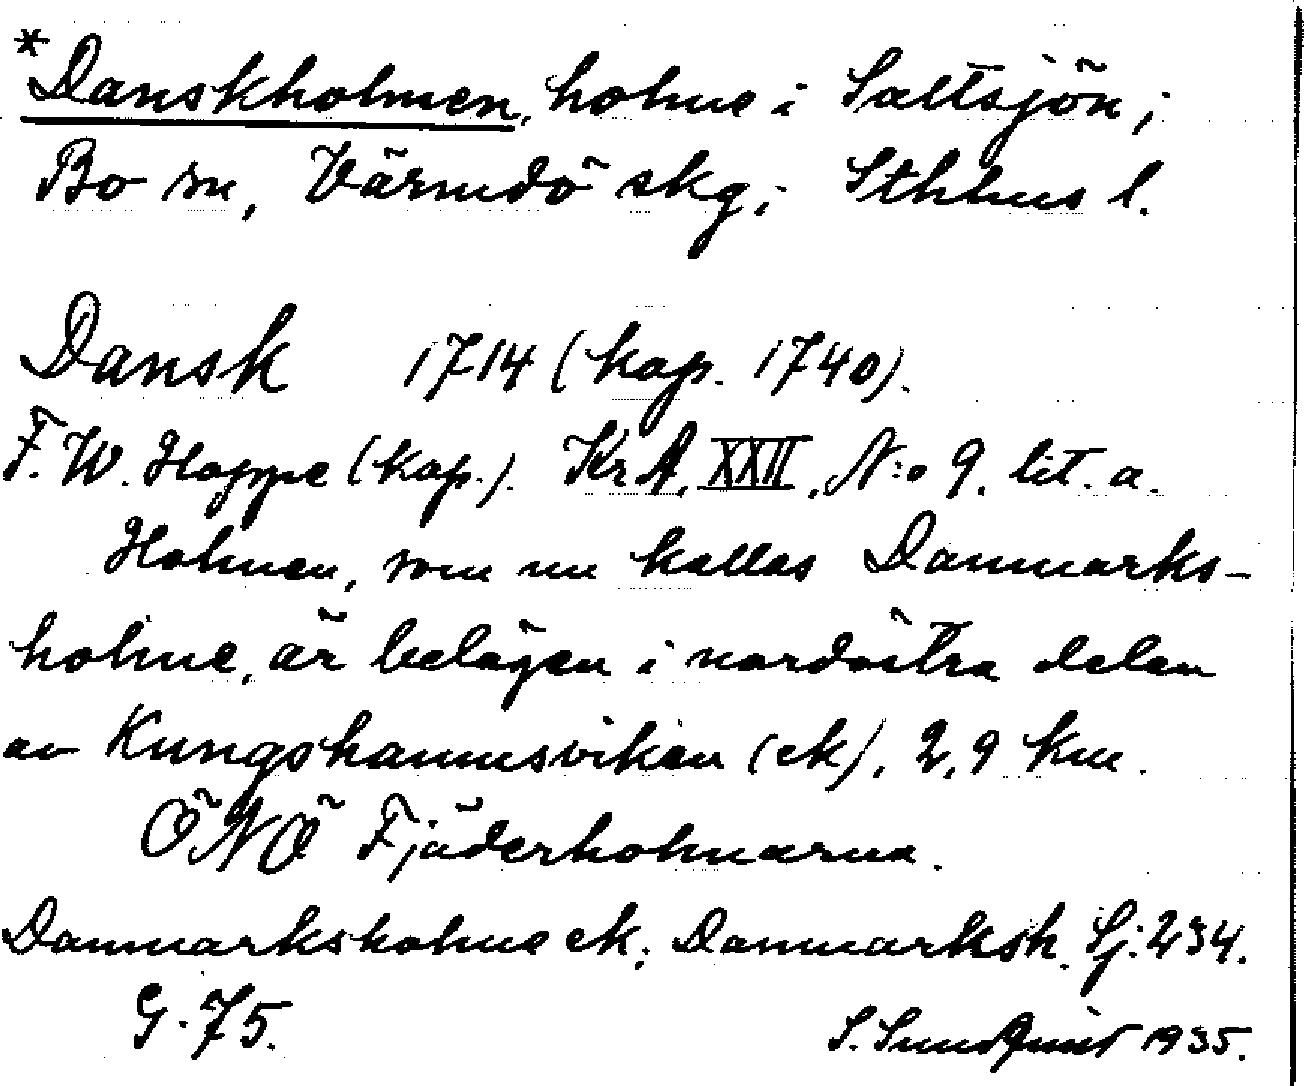 *Danskholmen, holme i Saltsjön;
Bo sn, Värmdö skg; Sthlms l.
Dansk 1714 (kop. 1740).
F. W. Hoppe (kop.). KrA, XXII, N:o 9. lit. a.
Holmen, som nu kallas Danmarks-
holme, är belägen i nordöstra delen
av Kungshamnsviken (ek), 2,9 km.
ÖNÖ Fjäderholmarna.
Danmarksholme ek; Danmarksh. Sj: 234.
G. 75. S. Sundquist 1935.